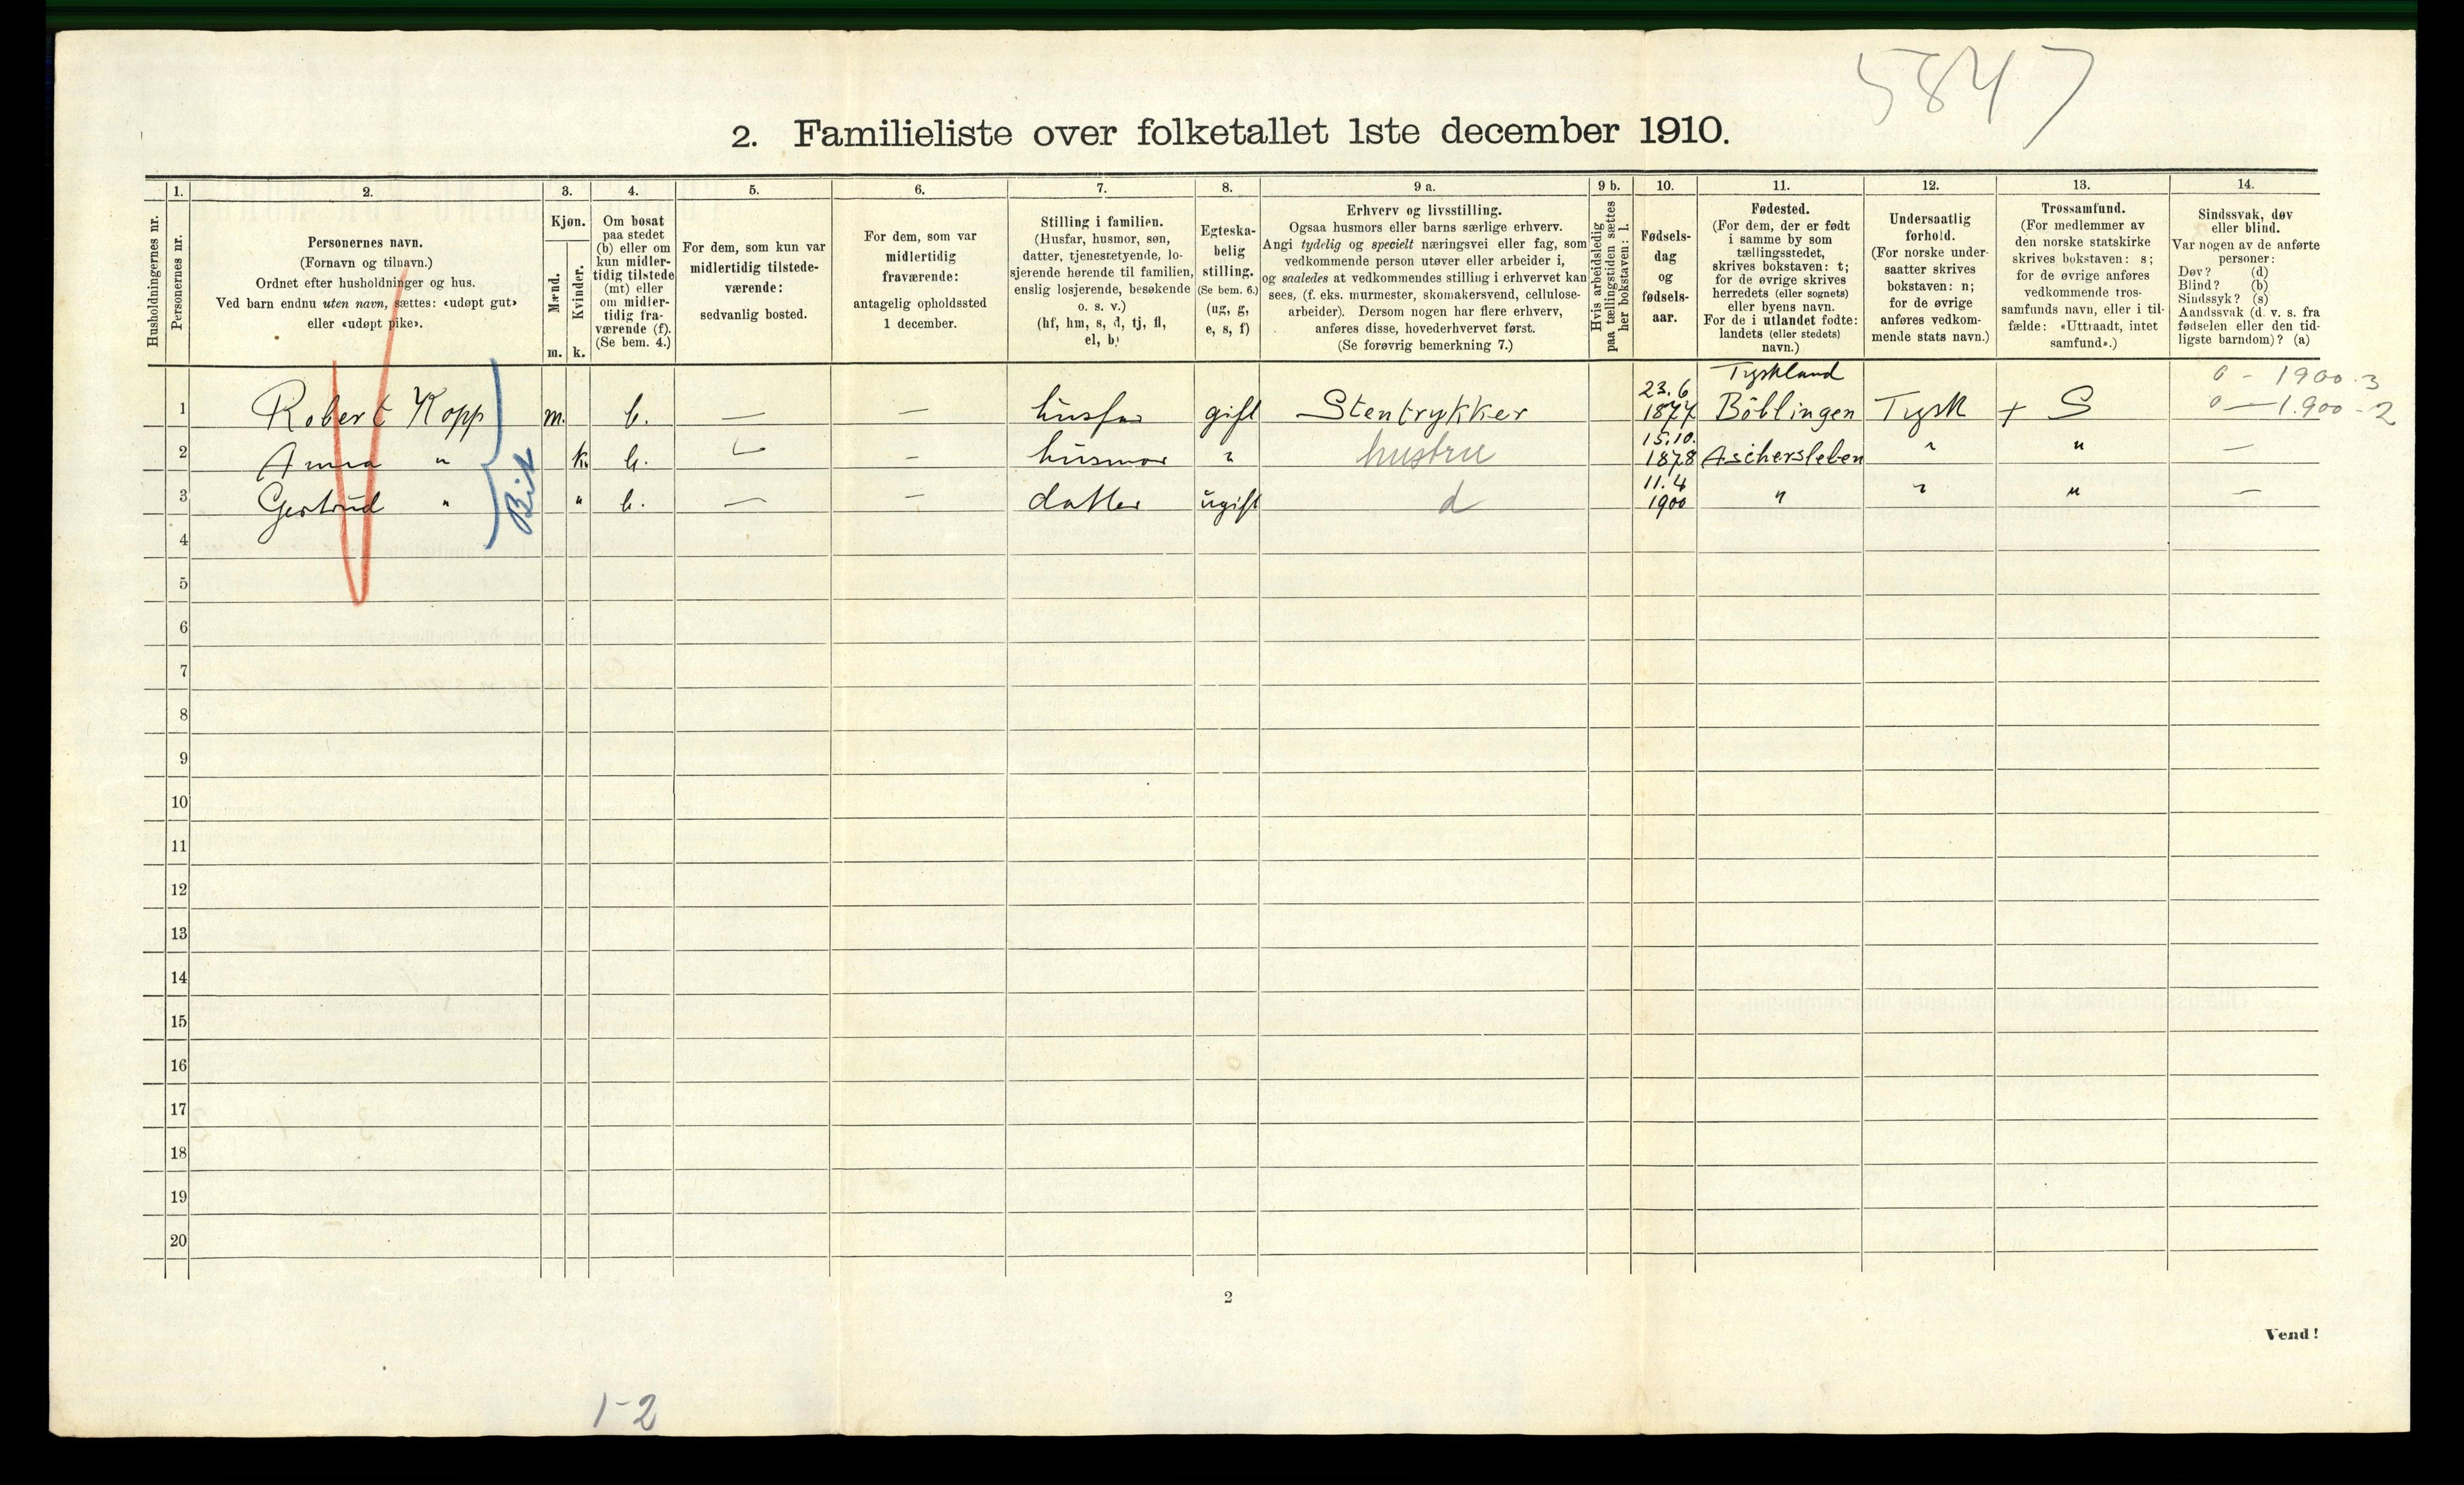 5847
2. Familieliste over folketallet 1ste december 1910.
1. 2. 3. 4. 5. 6. 7. 8. 9 a. 9 b. 10. 11. 12. 13. 14.
Husholdningernes nr.
Personernes nr.
Personernes navn.
(Fornavn og tilnavn.)
Ordnet efter husholdninger og hus.
Ved barn endnu uten navn, sættes: «udøpt gut»
eller «udøpt pike».
Kjøn.
Mænd.
Kvinder.
m. k.
Om bosat
paa stedet
(b) eller om
kun midler-
tidig tilstede
(mt) eller
om midler-
tidig fra-
værende (f).
(Se bem. 4.)
For dem, som kun var
midlertidig tilstede-
værende:
sedvanlig bosted.
For dem, som var
midlertidig
fraværende:
antagelig opholdssted
1 december.
Stilling i familien.
(Husfar, husmor, søn,
datter, tjenestetyende, lo-
sjerende hørende til familien,
enslig losjerende, besøkende
o. s. v.)
(hf, hm, s, d, tj, fl,
el, b)
Egteska-
belig
stilling.
(Se bem. 6.)
(ug, g,
e, s, f)
Erhverv og livsstilling.
Ogsaa husmors eller barns særlige erhverv.
Angi tydelig og specielt næringsvei eller fag, som
vedkommende person utøver eller arbeider i,
og saaledes at vedkommendes stilling i erhvervet kan
sees, (f. eks. murmester, skomakersvend, cellulose-
arbeider). Dersom nogen har flere erhverv,
anføres disse, hovederhvervet først.
(Se forøvrig bemerkning 7.)
Hvis arbeidsledig
paa tællingstiden sættes
her bokstaven: l.
Fødsels-
dag
og
fødsels-
aar.
Fødested.
(For dem, der er født
i samme by som
tællingsstedet,
skrives bokstaven: t;
for de øvrige skrives
herredets (eller sognets)
eller byens navn.
For de i utlandet fødte:
landets (eller stedets)
navn.)
Undersaatlig
forhold.
(For norske under-
saatter skrives
bokstaven: n;
for de øvrige
anføres vedkom-
mende stats navn.)
Trossamfund.
(For medlemmer av
den norske statskirke
skrives bokstaven: s;
for de øvrige anføres
vedkommende tros-
samfunds navn, eller i til-
fælde: «Uttraadt, intet
samfund».)
Sindssvak, døv
eller blind.
Var nogen av de anførte
personer:
Døv? (d)
Blind? (b)
Sindssyk? (s)
Aandssvak (d. v. s. fra
fødselen eller den tid-
ligste barndom)? (a)
Tyskland
0 - 1900-3
0 - 1.900-2
1 Robert Kopp m. b. — — husfar gift Stentrykker 23.6 1877 Böblingen Tysk + S
2 Anna " k. b. — — husmor " hustru 15.10. 1878 Aschersleben " " —
3 Gertrud " " b. — — datter ugift d 11.4 1900 " " " —
4
5
6
7
8
9
10
11
12
13
14
15
16
17
18
19
20
2
Vend!
1-2